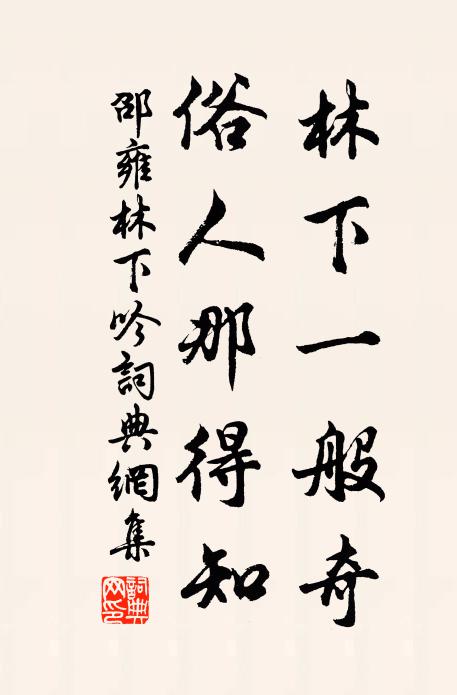 林下一般奇
俗人那得知
邵雍林下吟詞典網集
詞典
网印